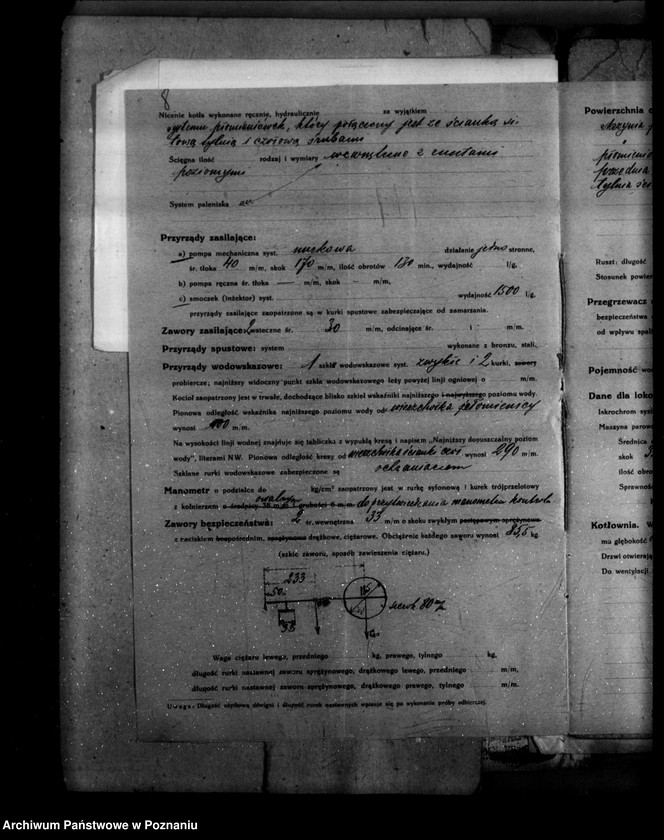 8
Nicenie kotła wykonane ręcznie, hydraulicznie za wyjątkiem
systemu płomieniówek, który połączony jest ze ścianką si-
tową tylną i czołową śrubami
Ścięgna ilość rodzaj i wymiary wewnętrzne z
poziomymi
System paleniska
Przyrządy zasilające:
a) pompa mechaniczna syst. działanie jedno stronne,
śr. tłoka 40 m/m, skok 170 m/m, ilość obrotów 130 min., wydajność l/g.
b) pompa ręczna śr. tłoka — m/m, skok — m/m,
c) smoczek (inżektor) syst. wydajność 1500 l/g.
przyrządy zasilające zaopatrzone są w kurki spustowe zabezpieczające od zamarzania.
Zawory zasilające: 2 wsteczne śr. 30 m/m, odcinające śr. i m/m.
Przyrządy spustowe: system wykonane z bronzu, stali,
Przyrządy wodowskazowe: 1 szkła wodowskazowe syst. zwykłe i 2 kurki, zawory
probiercze; najniższy widoczny punkt szkła wodowskazowego leży powyżej linji ogniowej o m/m.
Kocioł zaopatrzony jest w trwałe, dochodzące blisko szkieł wskaźniki najniższego i najwyższego poziomu wody
Pionowa odległość wskaźnika najniższego poziomu wody od wierzchołka płomienicy
wynosi 100 m/m.
Na wysokości linji wodnej znajduje się tabliczka z wypukłą kresą i napisem „Najniższy dopuszczalny poziom
wody”, literami NW. Pionowa odległość kresy od wierzchnika ścianki wynosi 290 m/m.
Szklane rurki wodowskazowe zabezpieczone są ochraniaczem
Manometr o podziałce do kg/cm² zaopatrzony jest w rurkę syfonową i kurek trójprzelotowy
z kołnierzem owalnym o średnicy 38 m/m i grubości 6 m/m do przyśrubowania manometru kontroln.
Zawory bezpieczeństwa: 2 śr. wewnętrzna 33 m/m o skoku zwykłym
z naciskiem bezpośrednim, sprężynowe drążkowe, ciężarowe. Obciążnie każdego zaworu wynosi 85,5 kg.
(szkic zaworu, sposób zawieszenia ciężaru.)
233
50
185
33
szerok. 80 m/m
Waga ciężaru lewego, przedniego kg, prawego, tylnego kg,
długość rurki nastawnej zaworu sprężynowego, drążkowego lewego, przedniego m/m,
długość rurki nastawnej zaworu sprężynowego, drążkowego prawego, tylnego m/m.
Uwaga: Długość użytkową dźwigni i długość rurek nastawnych wpisuje się po wykonaniu próby odbiorczej.
Powierzchnia
Ruszt: długość
Stosunek powier
Przegrzewacz
bezpieczeństwa
od wpływu spali
Pojemność wo
Dane dla loko
Iskrochron syst
Maszyna parow
Średnica
skok
ilość obro
Sprawność
Kotłownia. W
ma głębokość
Drzwi otwierają
Do wentylacji
Archiwum Państwowe w Poznaniu